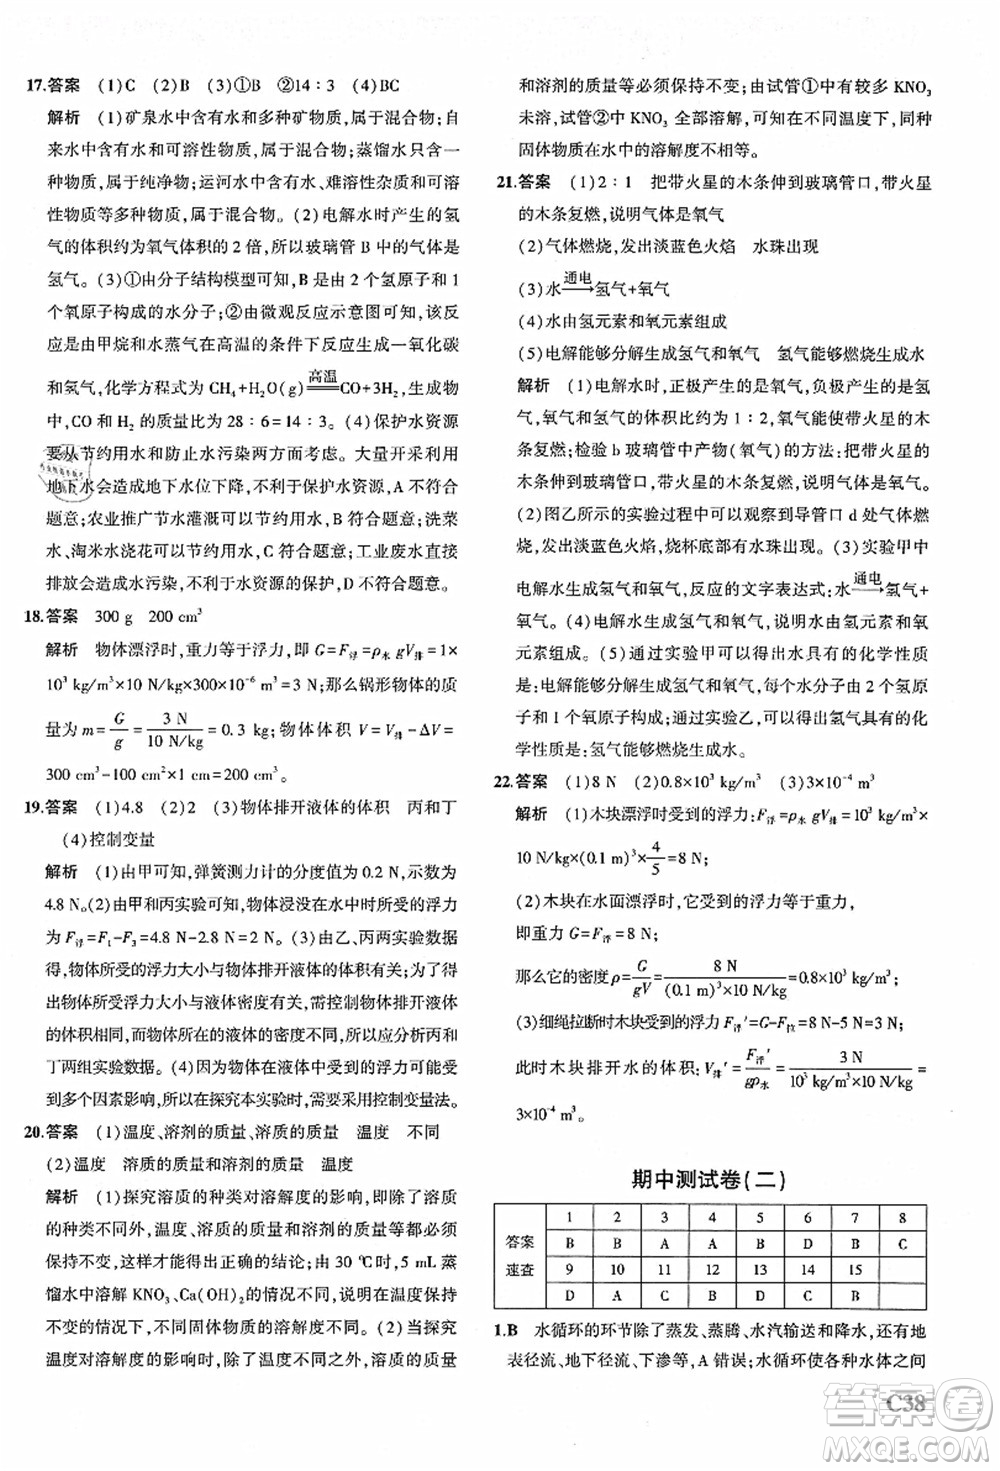 17.答案 (1)C (2)B (3)①B ②14∶3 (4)BC
解析 (1)矿泉水中含有水和多种矿物质,属于混合物;自
来水中含有水和可溶性物质,属于混合物;蒸馏水中只含
有水,属于纯净物;运河水中含有水、难溶性杂质和可溶
性物质等多种物质,属于混合物。(2)电解水时产生的氢
气的体积约为氧气体积的2倍,所以玻璃管B中的气体是
氢气。(3)①由分子结构模型可知,B是由2个氢原子和1
个氧原子构成的水分子;②由微观反应示意图可知,该反
应是由甲烷和水蒸气在高温的条件下反应生成一氧化碳
和氢气,化学方程式为CH₄+H₂O(g)=高温=CO+3H₂,生成物
中,CO和H₂的质量比为28∶6=14∶3。(4)保护水资源
要从节约用水和防止水污染两方面进行。大量开采使用
地下水会造成地下水位下降,不利于保护水资源,A不符合
题意;农业推广节水灌溉可以节约用水,B符合题意;洗菜
水、淘米水浇花可以节约用水,C符合题意;工业废水直接
排放会造成水污染,不利于水资源的保护,D不符合题意。
18.答案 300 g 200 cm³
解析 物体漂浮时,重力等于浮力,即G=F浮=ρ水gV排=1×
10³ kg/m³×10 N/kg×300×10⁻⁶ m³=3 N;那么锅形物体的质
量为m=G/g=3 N/10 N/kg=0.3 kg;物体体积V=V排-ΔV=
300 cm³-100 cm²×1 cm=200 cm³。
19.答案 (1)4.8 (2)2 (3)物体排开液体的体积 丙和丁
(4)控制变量
解析 (1)由甲可知,弹簧测力计的分度值为0.2 N,示数为
4.8 N。(2)由甲和丙实验可知,物体浸没在水中时所受的浮力
为F浮=F₁-F₃=4.8 N-2.8 N=2 N。(3)由乙、丙两实验数据可
得,物体所受的浮力大小与物体排开液体的体积有关;要
得出物体所受浮力大小与液体密度有关,需控制物体排开液体
的体积相同,而物体所在的液体的密度不同,所以应分析丙和
丁两组实验数据。(4)因为物体在水中所受的浮力可能受
到多个因素影响,所以在探究本实验时,采用控制变量法。
20.答案 (1)温度、溶剂的质量、溶质的质量 温度 不同
(2)温度 溶质的质量和溶剂的质量 温度
解析 (1)探究溶质的种类对溶解度的影响,即除了溶质
的种类不同外,温度、溶质的质量和溶剂的质量等都必须
保持不变,这样才能得出正确的结论;如以30 ℃时5 mL蒸
馏水中溶解KNO₃、Ca(OH)₂的情况为例,其他影响因素
不变的情况下,不同固体物质的溶解度不同。(2)当探究
温度对溶解度的影响时,除了温度不同外,溶质的质量
和溶剂的质量等也必须保持不变;由试管①中有较多KNO₃
未溶,试管②中KNO₃全部溶解,可知在不同温度下,同种
固体物质在水中的溶解度不相等。
21.答案 (1)2∶1 把带火星的木条伸到玻璃管口,带火星
的木条复燃,说明气体是氧气
(2)气体燃烧,发出淡蓝色火焰 水珠出现
(3)水 通电→ 氢气+氧气
(4)水由氢元素和氧元素组成
(5)电解能够分解生成氢气和氧气 氢气能够燃烧生成水
解析 (1)电解水时,正极产生的是氧气,负极产生的是氢
气,氧气和氢气的体积比约为1∶2,氧气能使带火星的木
条复燃;检验b玻璃管中产物(氧气)的方法:把带火星的
木条伸到玻璃管口,带火星的木条复燃,说明气体是氧气。
(2)图乙所示的实验过程中可以观察到导管口d处气体燃
烧,发出淡蓝色火焰,烧杯底部有水珠出现。(3)实验甲中
电解水生成氢气和氧气,反应的文字表达式:水 通电→ 氢气+
氧气。(4)电解水生成氢气和氧气,说明水由氢元素和氧
元素组成。(5)通过实验甲可以得出水具有的化学性质
是:电解能够分解生成氢气和氧气;每个水分子由2个氢原
子和1个氧原子构成;通过实验乙,可以得出氢气具有的化
学性质是:氢气能够燃烧生成水。
22.答案 (1)8 N (2)0.8×10³ kg/m³ (3)3×10⁻⁴ m³
解析 (1)木块漂浮时的浮力:F浮=ρ水gV排=10³ kg/m³×
10 N/kg×(0.1 m)³×4/5=8 N;
(2)木块在水面漂浮时,它受到的浮力等于重力,
即重力G=F浮=8 N;
那么它的密度ρ=G/gV=8 N/(0.1 m)³×10 N/kg=0.8×10³ kg/m³;
(3)细绳拉断时木块受到的浮力F浮′=G-F拉=8 N-5 N=3 N,
此时木块排开水的体积:V排′=F浮′/gρ水=3 N/10³ kg/m³×10 N/kg=
3×10⁻⁴ m³。
期中测试卷(二)
答案速查
1 2 3 4 5 6 7 8
B B A A B D B C
9 10 11 12 13 14 15
D A C A B D B
1.B 水循环的环节除了蒸发、蒸腾、水汽输送和降水,还有地
表径流、地下径流、下渗等,A错误;水循环使各种水体之间
C38
答案卷
MXQE.COM